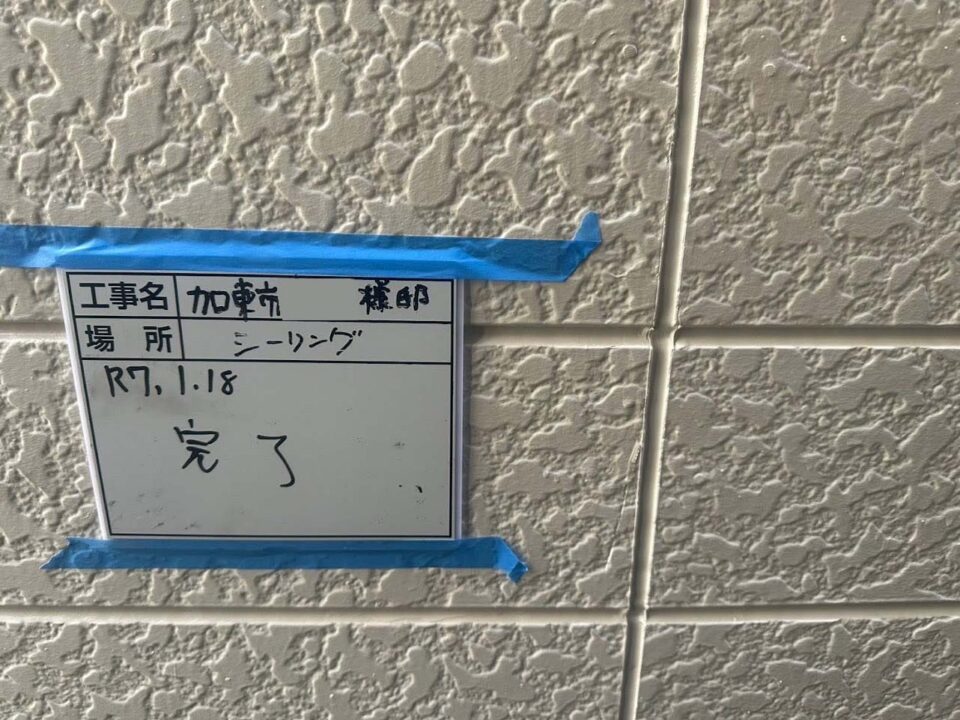 工事名 加東市 様邸
場所 シーリング
R7.1.18
完了